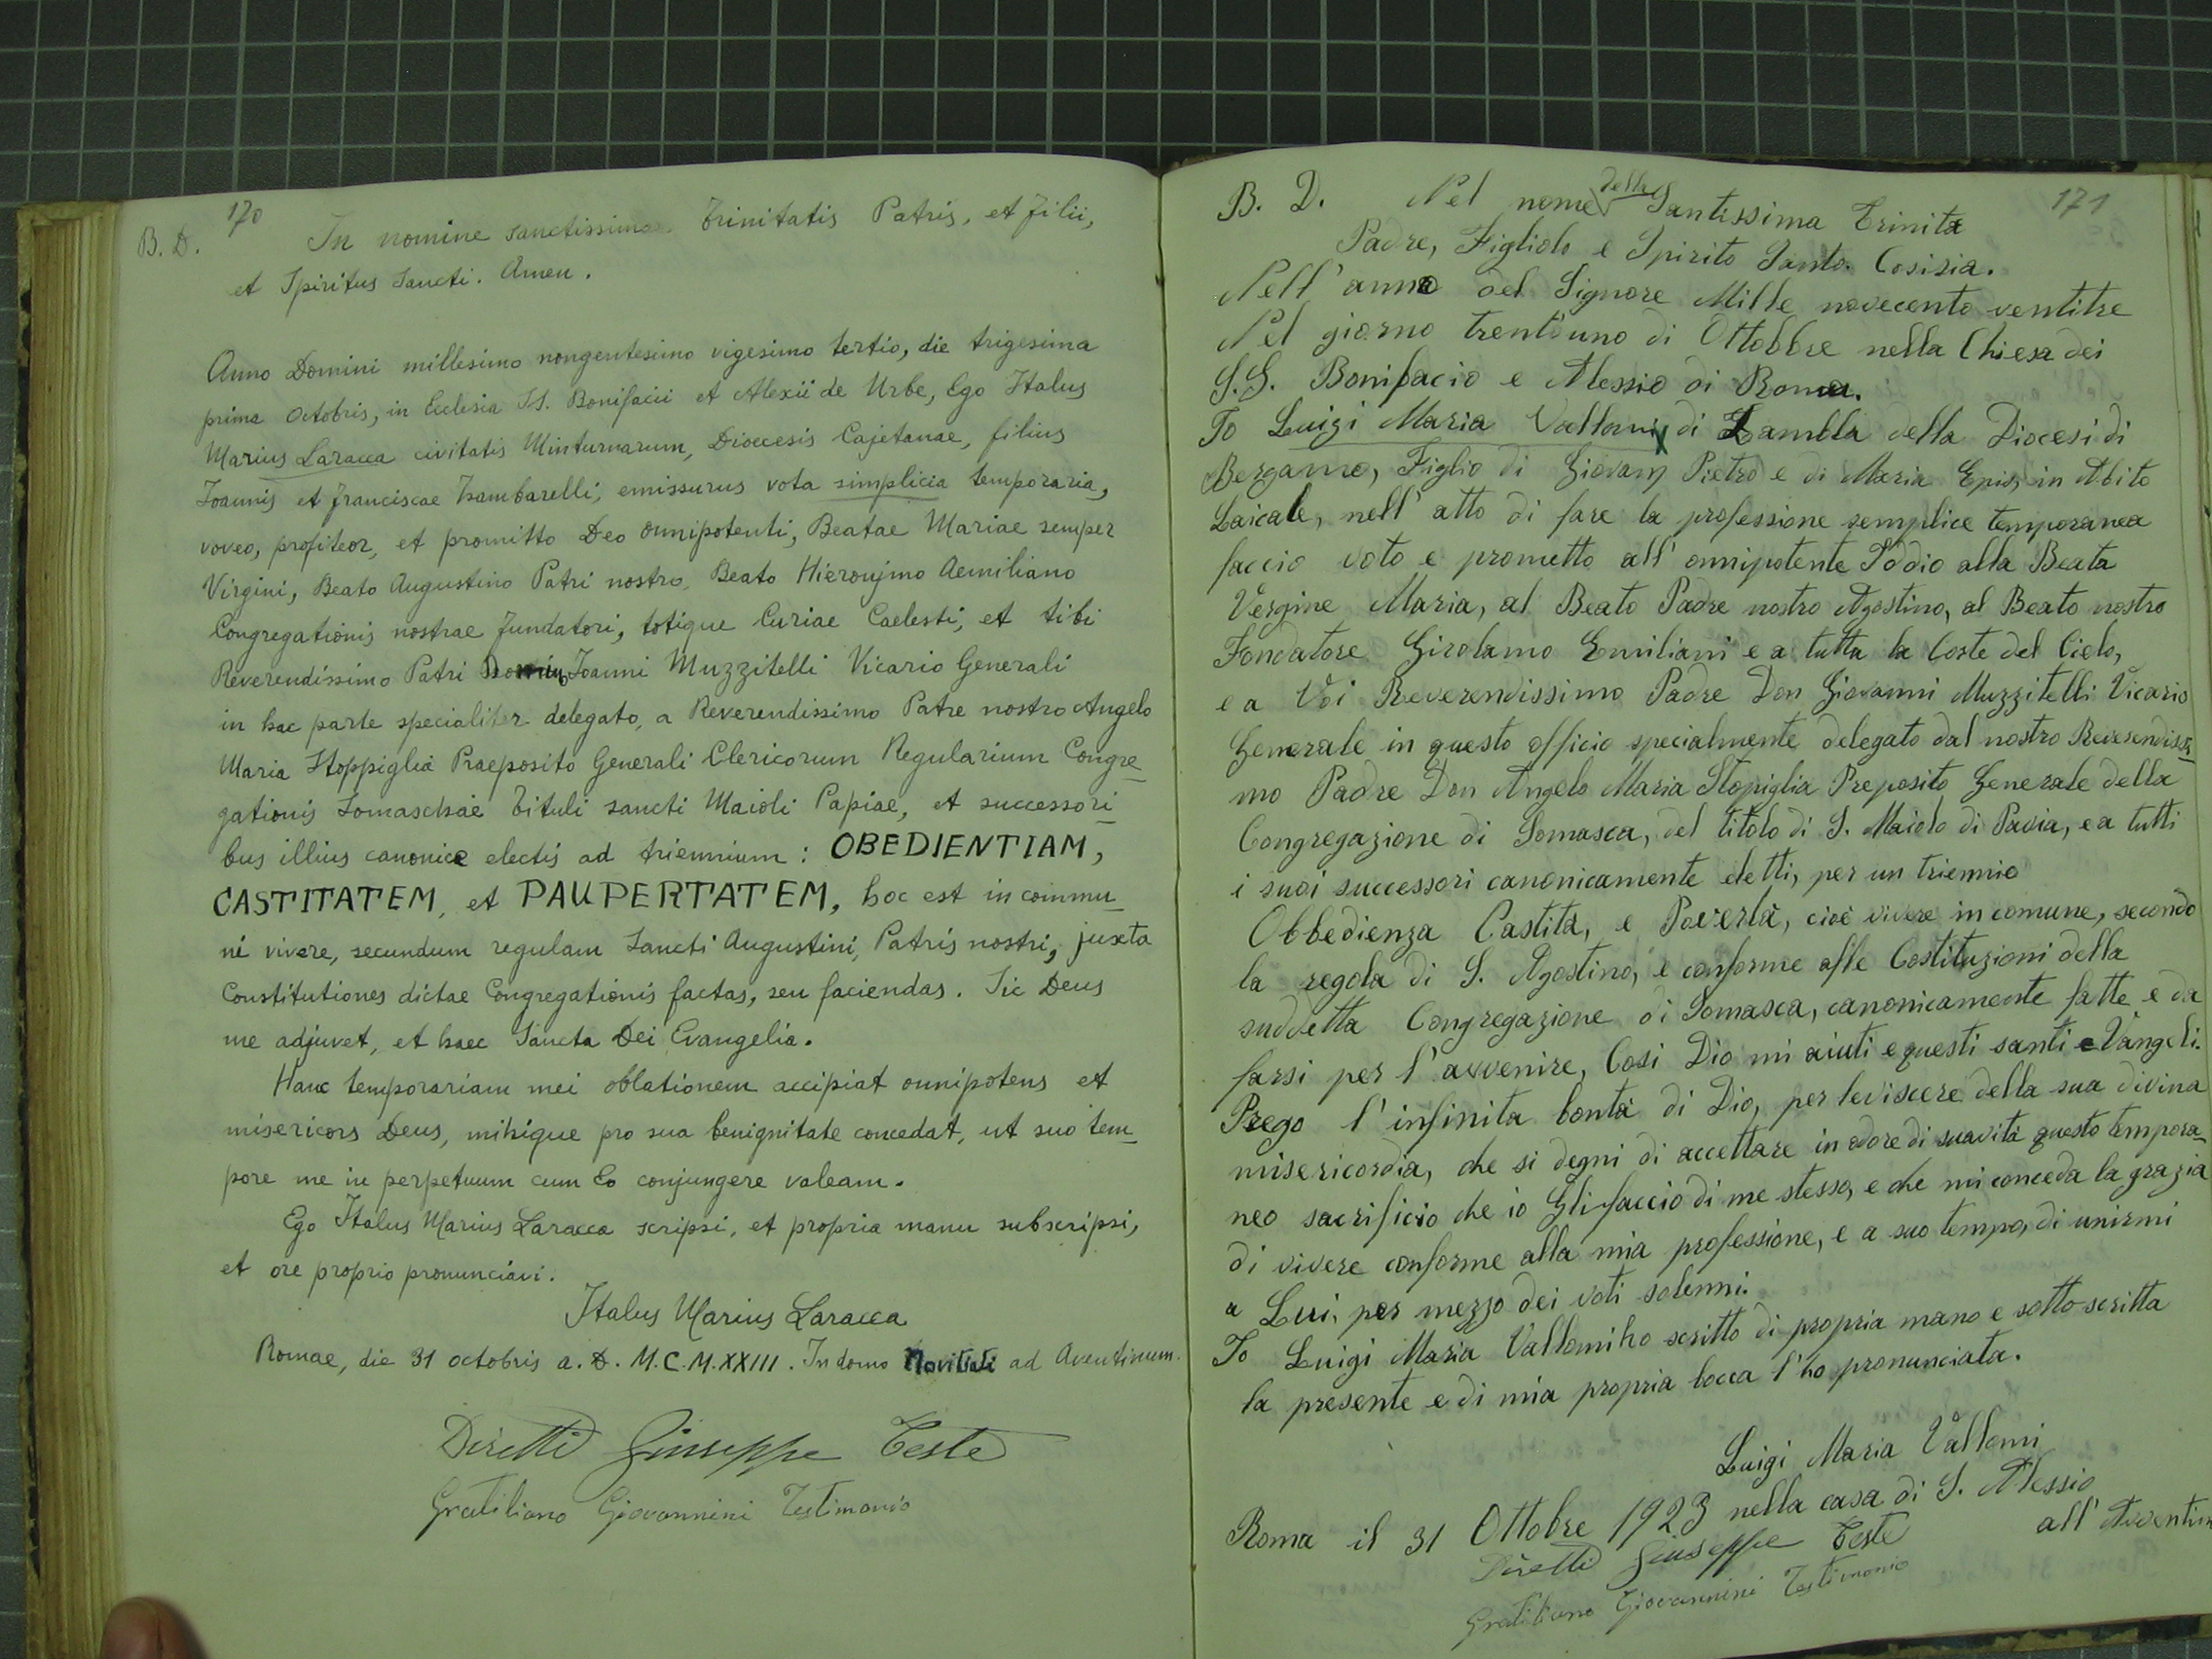 170
B. D. In nomine sanctissimae Trinitatis Patris, et Filii,
et Spiritus Sancti. Amen.
Anno Domini millesimo nongentesimo vigesimo tertio, die trigesima
prima Octobris, in Ecclesia SS. Bonifacii et Alexii de Urbe, Ego Italus
Marius Laracca civitatis Minturnarum, Dioecesis Cajetanae, filius
Joannis et Franciscae Zambarelli, emissurus vota simplicia temporaria,
voveo, profiteor, et promitto Deo omnipotenti, Beatae Mariae semper
Virgini, Beato Augustino Patri nostro, Beato Hieronymo Aemiliano
Congregationis nostrae Fundatori, totique Curiae Caelesti, et tibi
Reverendissimo Patri Joanni Muzzitelli Vicario Generali
in hac parte specialiter delegato, a Reverendissimo Patre nostro Angelo
Maria Stoppiglia Praeposito Generali Clericorum Regularium Congre-
gationis Somaschae Tituli sancti Maioli Papiae, et successori-
bus illius canonice electis ad triennium: OBEDIENTIAM,
CASTITATEM, et PAUPERTATEM, hoc est in commu-
ni vivere, secundum regulam Sancti Augustini, Patris nostri, juxta
Constitutiones dictae Congregationis factas, seu faciendas. Sic Deus
me adjuvet, et haec Sancta Dei Evangelia.
Hanc temporariam mei oblationem accipiat omnipotens et
misericors Deus, mihique pro sua benignitate concedat, ut suo tem-
pore me in perpetuum cum Eo conjungere valeam.
Ego Italus Marius Laracca scripsi, et propria manu subscripsi,
et ore proprio pronunciavi.
Italus Marius Laracca
Romae, die 31 octobris a. D. M.C.M.XXIII. In domo Novitiati ad Aventinum.
Diretti Giuseppe Teste
Gratiliano Giovannini Testimonio
171
B. D. Nel nome della Santissima Trinita
Padre, Figliolo e Spirito Santo. Cosisia.
Nell' anno del Signore Mille novecento ventitre
Nel giorno trent'uno di Ottobbre nella Chiesa dei
S.S. Bonifacio e Alessio di Roma.
Io Luigi Maria Vallomi, di Zambla della Diocesi di
Bergamo, Figlio di Giovam Pietro e di Maria Epis, in Abito
Laicale, nell' atto di fare la professione semplice temporanea
faccio voto e prometto all' omnipotente Iddio alla Beata
Vergine Maria, al Beato Padre nostro Agostino, al Beato nostro
Fondatore Girolamo Emiliani e a tutta la Corte del Cielo,
e a Voi Reverendissimo Padre Don Giovanni Muzzitelli Vicario
Generale in questo officio specialmente delegato dal nostro Reverendiss-
mo Padre Don Angelo Maria Stopiglia Preposito Generale della
Congregazione di Somasca, del titolo di S. Maiolo di Pavia, e a tutti
i suoi successori canonicamente eletti, per un triennio
Obbedienza Castità, e Poverta, cioè vivere in comune, secondo
la regola di S. Agostino, e conforme alle Costituzioni della
suddetta Congregazione di Somasca, canonicamente fatte e da
farsi per l' avvenire, Cosi Dio mi aiuti e questi santi eVangeli.
Prego l' infinita bontà di Dio, per leviscere della sua divina
misericordia, che si degni di accettare in odore di suavità questo tempora-
neo sacrificio che io Gli faccio di me stesso, e che mi conceda la grazia
di vivere conforme alla mia professione, e a suo tempo, di unirmi
a Lui, per mezzo dei voti solenni.
Io Luigi Maria Vallomi ho scritto di propria mano e sotto scritta
la presente e di mia propria bocca l' ho pronunciata.
Luigi Maria Vallomi
Roma il 31 Ottobre 1923 nella casa di S. Alessio
all' Aventin
Diretti Giuseppe Teste
Gratiliano Giovannini Testimonio